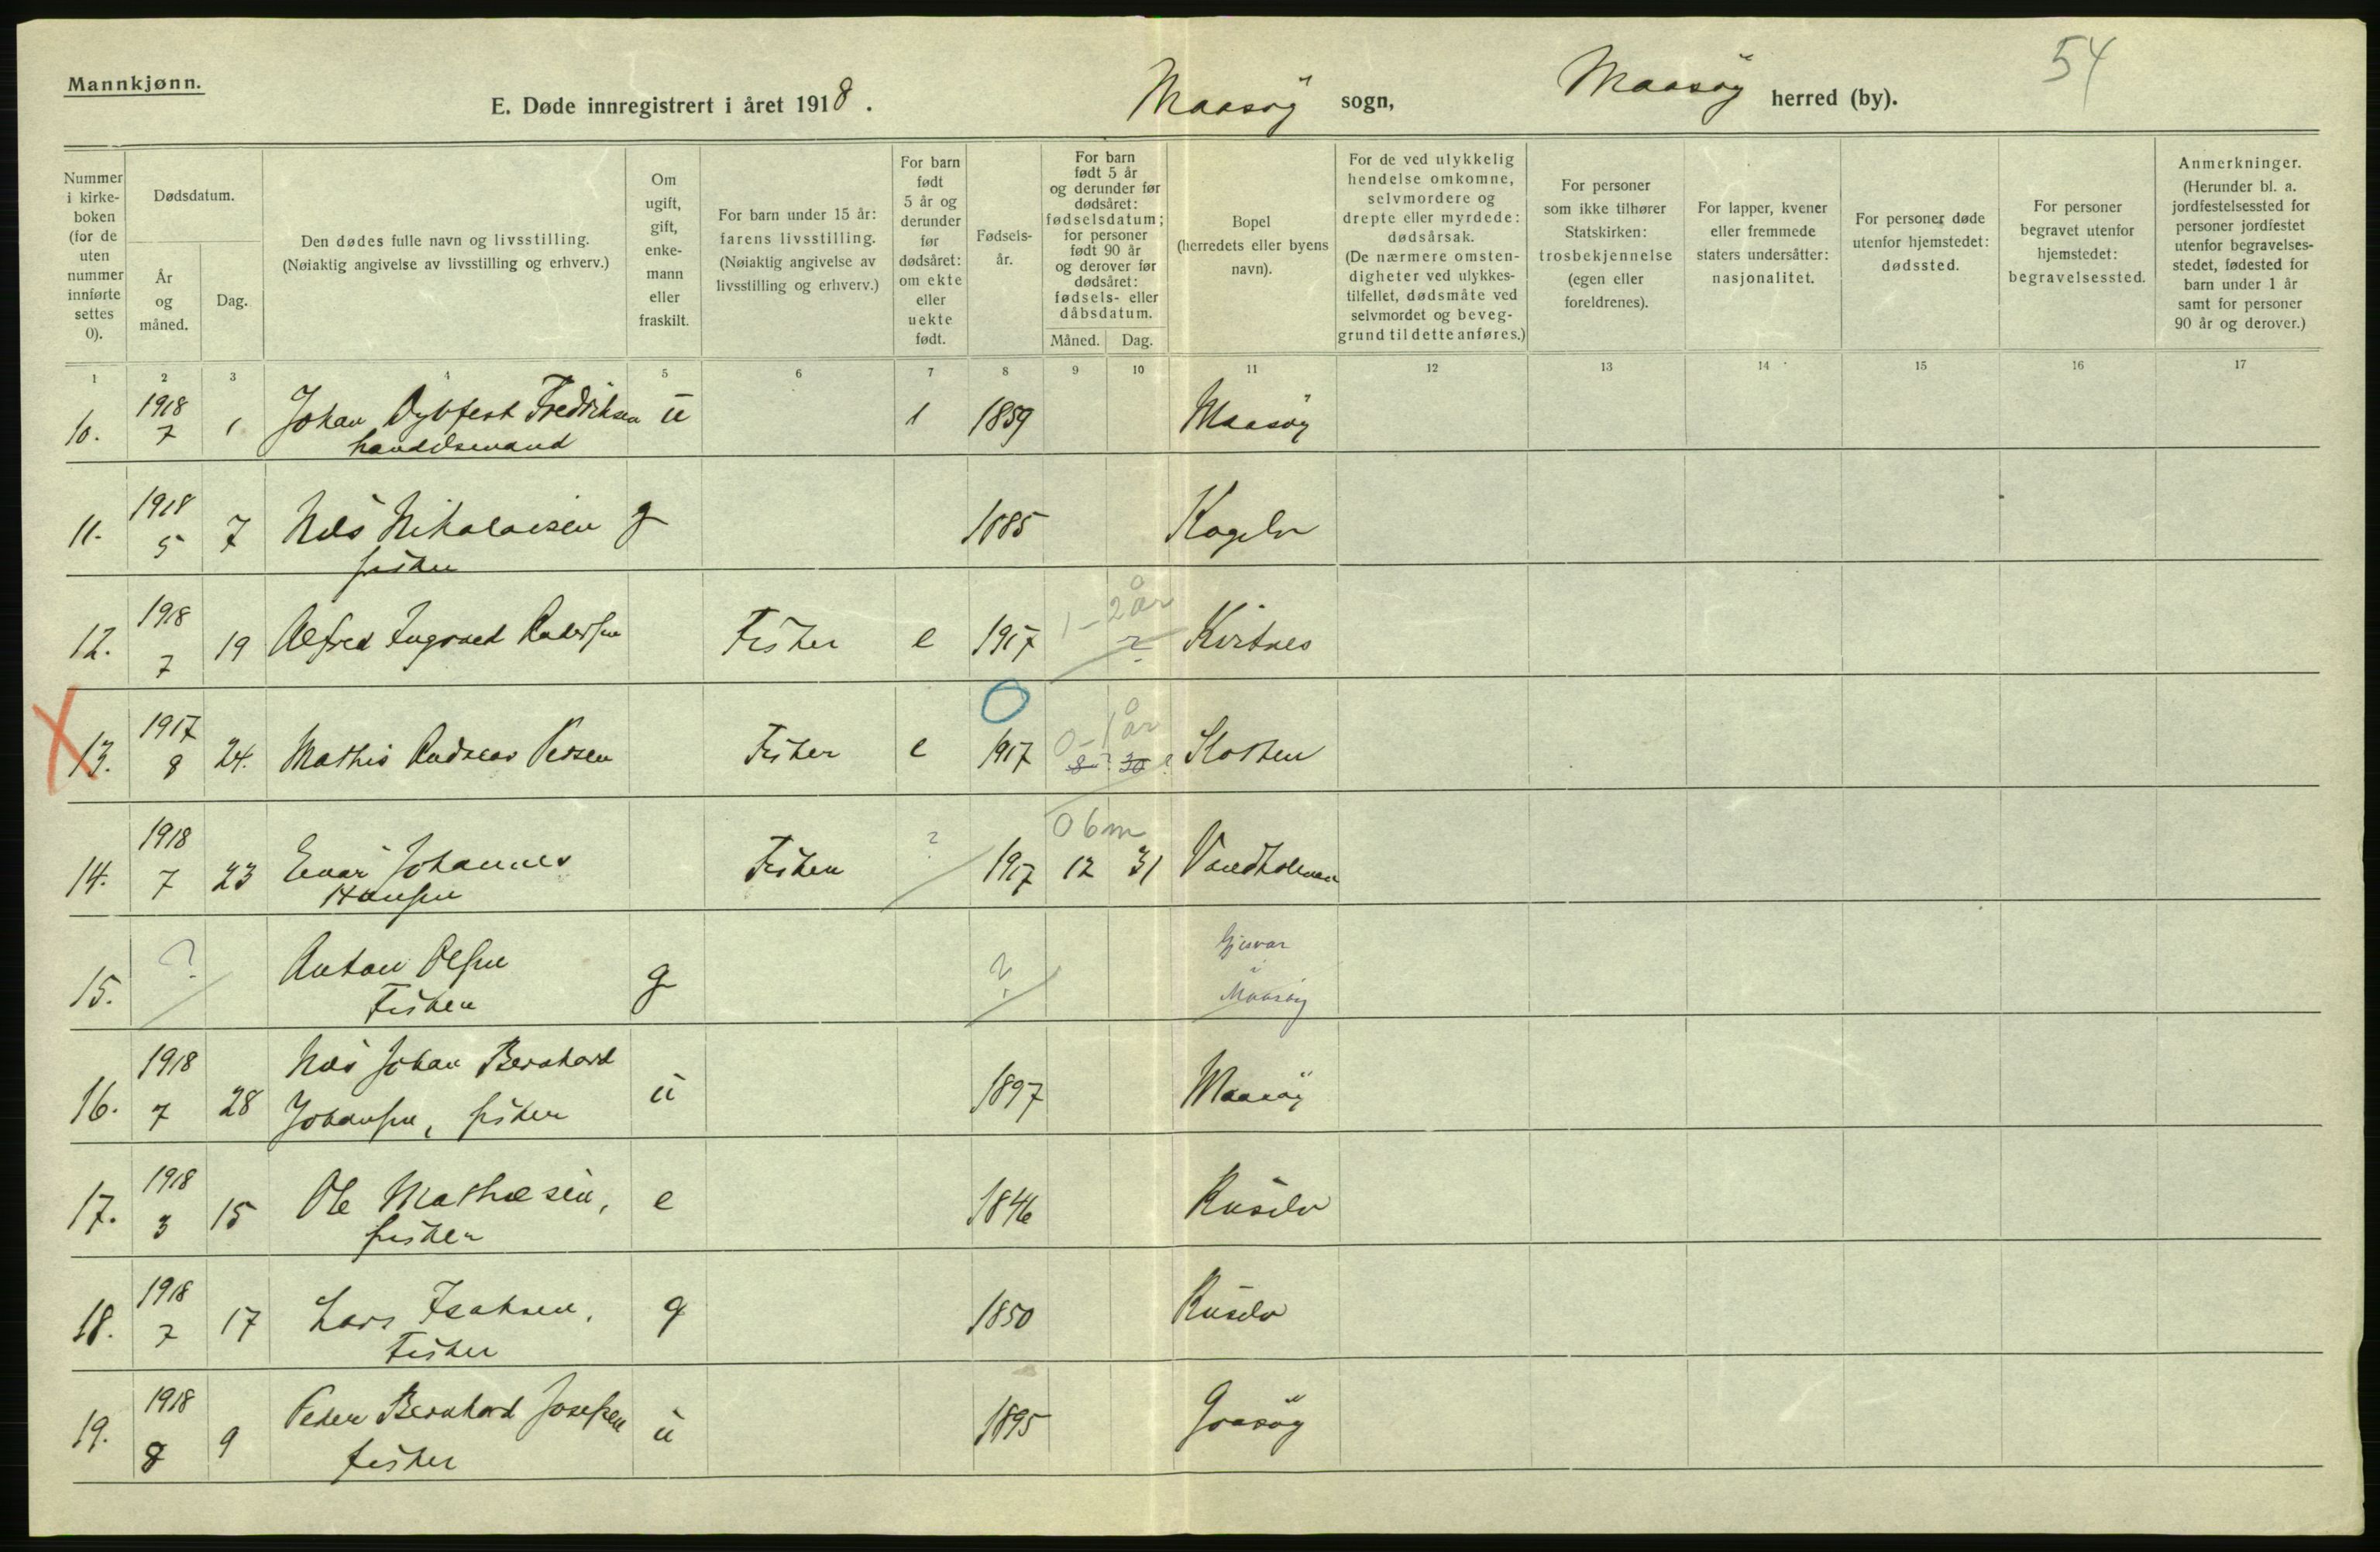 54
Mannkjønn.
E. Døde innregistrert i året 1918. Maasöy sogn, Maasöy herred (by).
Nummer i kirke- boken (for de uten nummer innførte settes 0).
Dødsdatum.
År og måned.
Dag.
Den dødes fulle navn og livsstilling.
(Nøiaktig angivelse av livsstilling og erhverv.)
Om ugift, gift, enke- mann eller fraskilt.
For barn under 15 år:
farens livsstilling.
(Nøiaktig angivelse av
livsstilling og erhverv.)
For barn født 5 år og derunder før dødsåret: om ekte eller uekte født.
Fødsels- år.
For barn født 5 år og derunder før dødsåret: fødselsdatum; for personer født 90 år og derover før dødsåret: fødsels- eller dåbsdatum.
Måned. Dag.
Bopel
(herredets eller byens
navn).
For de ved ulykkelig
hendelse omkomne,
selvmordere og
drepte eller myrdede:
dødsårsak.
(De nærmere omsten-
digheter ved ulykkes-
tilfellet, dødsmåte ved
selvmordet og beveg-
grund til dette anføres.)
For personer
som ikke tilhører
Statskirken:
trosbekjennelse
(egen eller
foreldrenes).
For lapper, kvener
eller fremmede
staters undersåtter:
nasjonalitet.
For personer døde
utenfor hjemstedet:
dødssted.
For personer
begravet utenfor
hjemstedet:
begravelsessted.
Anmerkninger.
(Herunder bl. a.
jordfestelsessted for
personer jordfestet
utenfor begravelses-
stedet, fødested for
barn under 1 år
samt for personer
90 år og derover.)
1 2 3 4 5 6 7 8 9 10 11 12 13 14 15 16 17
10. 1918 7 1 Johan Dybfest Fredriksen ü 1 1859 Maasöy
handelsmand
11. 1918 5 7 Nils Nikolaisen g 1885
fisker
12. 1918 7 19 Alfred Ingvald Fisker e 1917 1-2 år ?
X 13. 1917 8 24. Mathis Andreas Persen Fisker e O 1917 0-1 år 8? 30?
14. 1918 7 23 Einar Johannes Fisker ? 1917 06m 12 31
Hansen
15. ? Anton Olsen g ? Gjesvær i Maasöy
Fisker
16. 1918 7 28 Nils Johan Bernhard ü 1897 Maasöy
Johansen, fisker
17. 1918 3 15 Ole Mathisen, e 1846 Ruselv
fisker
18. 1918 7 17 Lars Isaksen, g 1850 Ruselv
Fisker
19. 1918 8 9 Peder Bernhard Josefsen ü 1895
fisker